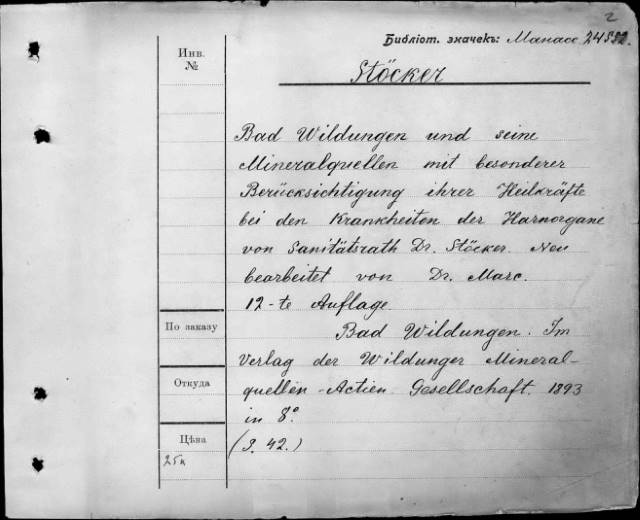 2
Библіот. значекъ: Манасс 24552.
Инв.
№
Stöcker
Bad Wildungen und seine
Mineralquellen mit besonderer
Berücksichtigung ihrer Heilkräfte
bei den Krankheiten der Harnorgane
von Sanitätsrath Dr. Stöcker. Neu
bearbeitet von Dr. Marc.
12-te Auflage
По заказу
Bad Wildungen. Im
Verlag der Wildunger Mineral-
quellen-Actien Gesellschaft. 1893
Откуда
in 8°
Цѣна
(S. 42.)
25к